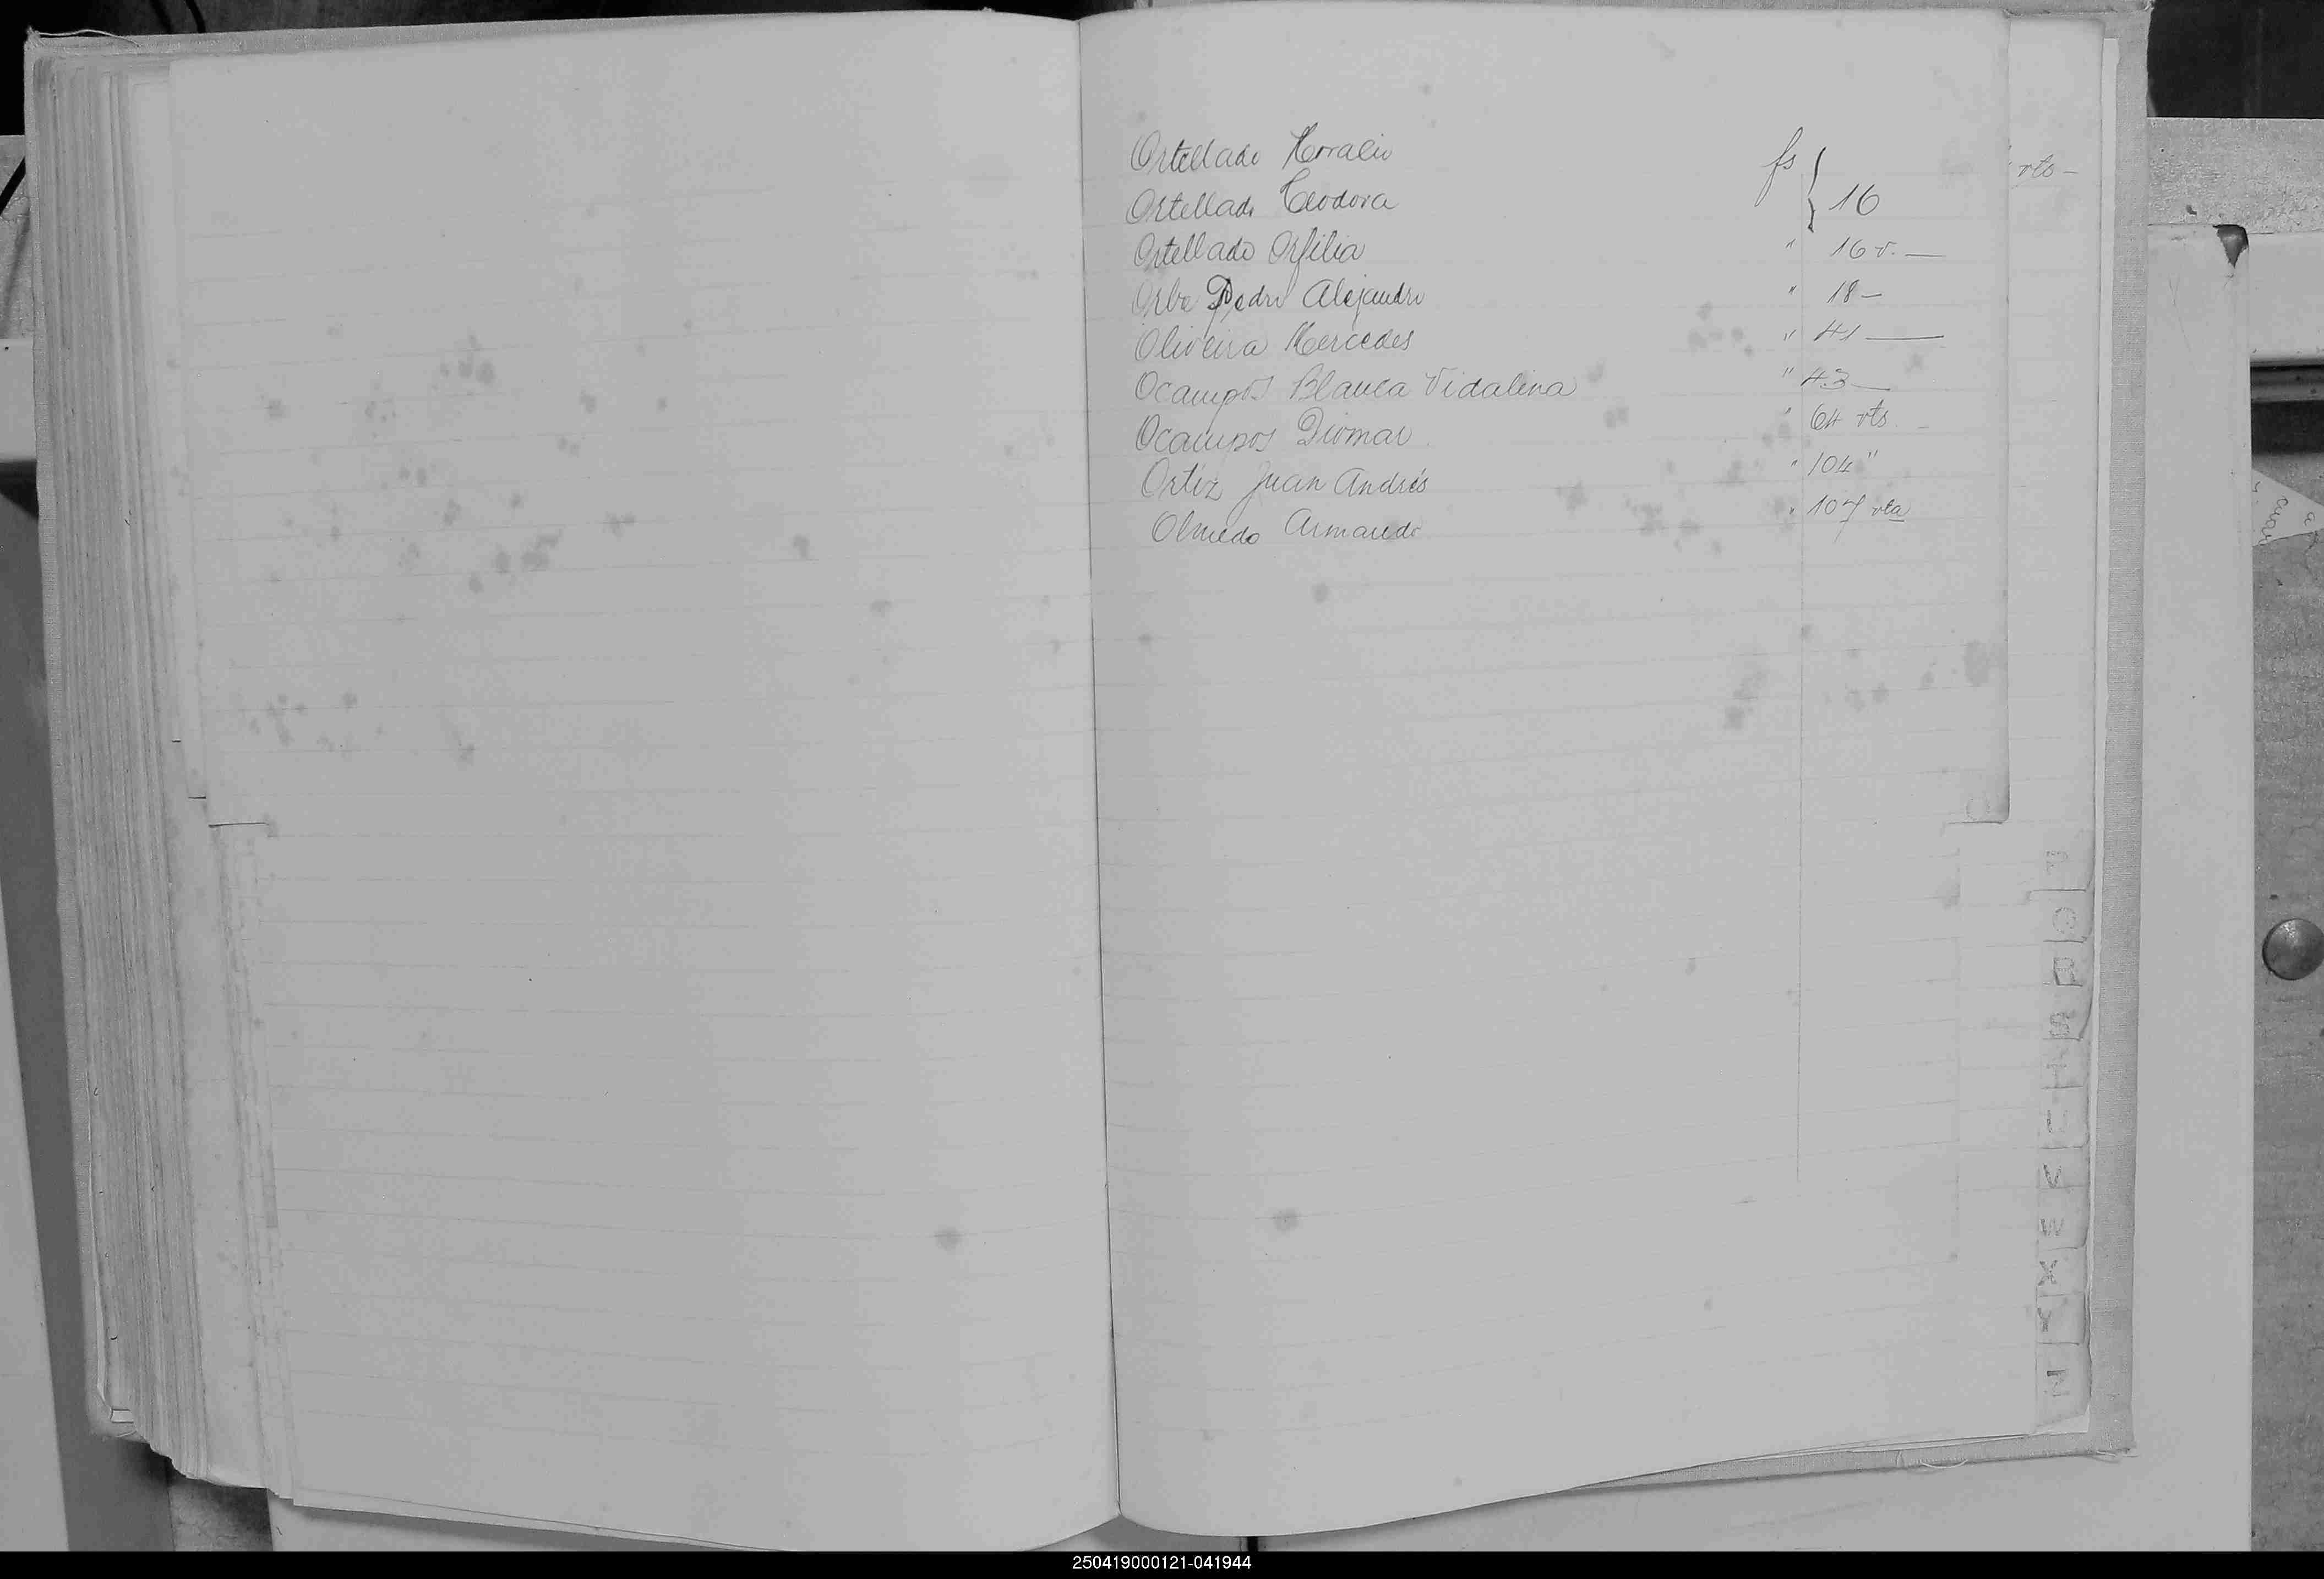 Ortellado Horacio fs
Ortellado Teodora } 16
Ortellado Orfilia " 16 v. —
Orbe Pedro Alejandro " 18 —
Oliveira Mercedes " 41 —
Ocampos Blanca Vidalina " 43 —
Ocampos Diomar " 64 vts.
Ortíz Juan Andrés " 104 "
Olmedo Armando " 107 vta
vts —
O
P
Q
R
S
T
V
W
X
Y
Z
250419000121-041944